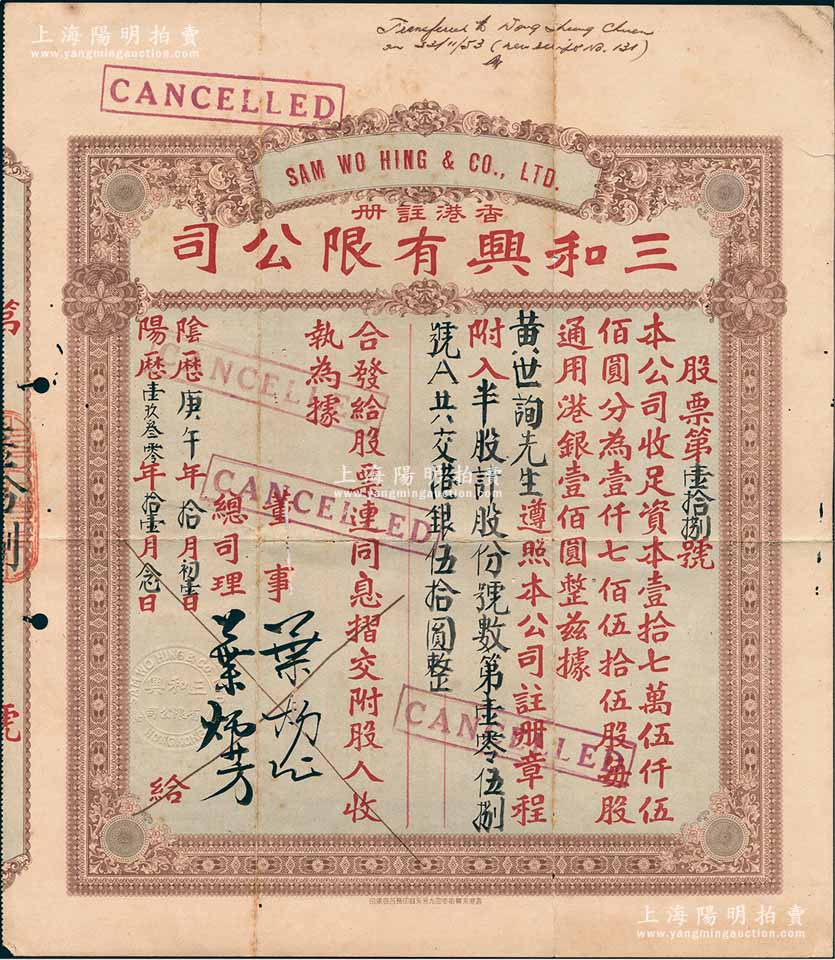 上海陽明拍賣
www.yangmingauction.com
Transferred to Wong Sheung Chuen
on 22/11/53 (new scrip No. 131)
CANCELLED
SAM WO HING & CO., LTD.
香港註冊
三和興有限公司
股票第壹拾捌號
本公司收足資本壹拾七萬伍仟伍
佰圓分為壹仟七佰伍拾伍股每股
通用港銀壹佰圓整茲據
黃世詢先生遵照本公司註冊章程
附入半股該股份號數第壹零伍捌
號A共交港銀伍拾圓整
合發給股票連同息摺交附股人收
執為據
董事
總司理 葉炳芳
陰歷庚午年拾月初壹日
陽歷壹玖叁零年拾壹月念日
給
CANCELLED
CANCELLED
CANCELLED
三和興
有限公司
SAM WO HING & CO.
HONGKONG
第
壹拾捌
號
上海陽明拍賣
www.yangmingauction.com
上海陽明拍賣
www.yangmingauction.com